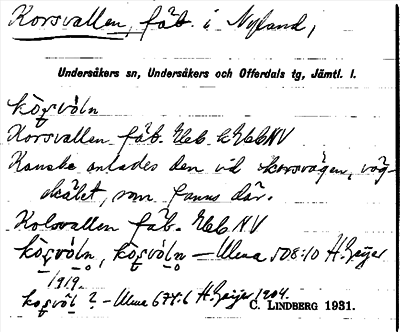 Korsvallen, fäb. i Nyland,
Undersåkers sn, Undersåkers och Offerdals tg, Jämtl. l.
Korsvallen fäb.
Kanske anlades den vid korsvägen, väg-
skälet, som fanns där.
Kolsvallen fäb.
Ulma 508:10 H. Geijer
1919.
? - Ulma 674:6 H. Geijer 1904.
C. LINDBERG 1931.